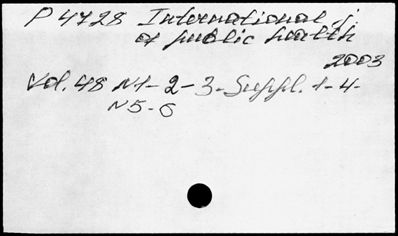 P 4728 International j.
of public health
2003
Vol. 48 N1-2-3-Suppl. 1-4-
N5-6